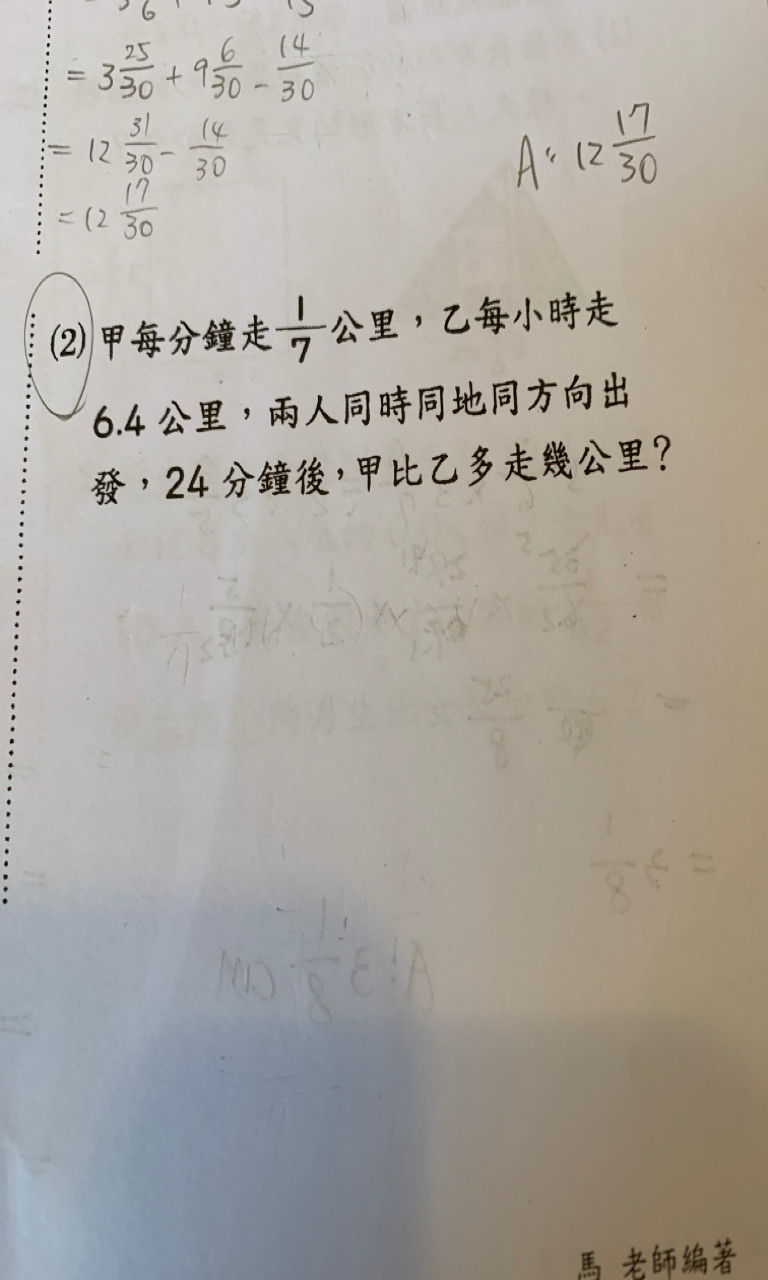 = 3 25/30 + 9 6/30 - 14/30
= 12 31/30 - 14/30
= 12 17/30
A: 12 17/30
(2) 甲每分鐘走 1/7 公里，乙每小時走
6.4 公里，兩人同時同地同方向出
發，24 分鐘後，甲比乙多走幾公里？
馬 老師編著